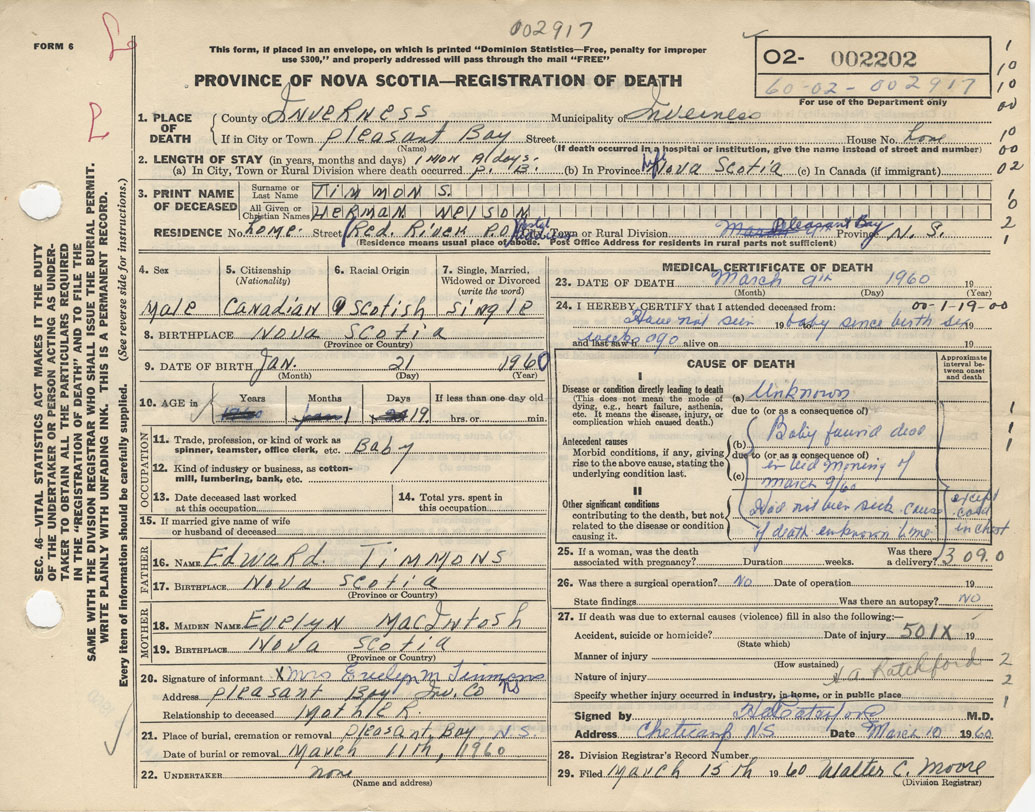 002917
FORM 6
This form, if placed in an envelope, on which is printed "Dominion Statistics—Free, penalty for improper
use $300," and properly addressed will pass through the mail "FREE"
O2- 002202
60-02-002917
For use of the Department only
PROVINCE OF NOVA SCOTIA—REGISTRATION OF DEATH
1. PLACE OF DEATH
County of INVERNESS Municipality of Inverness
If in City or Town Pleasant Bay Street House No. home
(Name) (If death occurred in a hospital or institution, give the name instead of street and number)
2. LENGTH OF STAY (in years, months and days) 1 MON 19 days.
(a) In City, Town or Rural Division where death occurred P. B. (b) In Province life Nova Scotia (c) In Canada (if immigrant)
3. PRINT NAME OF DECEASED
Surname or Last Name TIMMONS.
All Given or Christian Names HERMAN WELSON
RESIDENCE No. home. Street (Red. River P.O. Postal Town or Rural Division Pleasant Bay Province N. S.
(Residence means usual place of abode. Post Office Address for residents in rural parts not sufficient)
4. Sex
Male
5. Citizenship
(Nationality)
Canadian
6. Racial Origin
Scotish
7. Single, Married,
Widowed or Divorced
(write the word)
Single
8. BIRTHPLACE Nova Scotia
(Province or Country)
9. DATE OF BIRTH Jan. 21 1960
(Month) (Day) (Year)
10. AGE in Years Months 1 Days 19. If less than one day old
hrs. or min.
OCCUPATION
11. Trade, profession, or kind of work as
spinner, teamster, office clerk, etc. Baby
12. Kind of industry or business, as cotton-
mill, lumbering, bank, etc.
13. Date deceased last worked
at this occupation
14. Total yrs. spent in
this occupation
15. If married give name of wife
or husband of deceased
FATHER
16. NAME Edward. TIMMONS
17. BIRTHPLACE Nova Scotia
(Province or Country)
MOTHER
18. MAIDEN NAME Evelyn MacIntosh
19. BIRTHPLACE Nova Scotia
(Province or Country)
20. Signature of informant X Mrs Evelyn M Timmons
Address Pleasant Bay Inv. Co NS
Relationship to deceased MOTHER.
21. Place of burial, cremation or removal Pleasant Bay, N.S.
Date of burial or removal March 11th, 1960
22. UNDERTAKER none
(Name and address)
MEDICAL CERTIFICATE OF DEATH
23. DATE OF DEATH March 9th 1960 19
(Month) (Day) (Year)
24. I HEREBY CERTIFY that I attended deceased from: 00-1-19-00
Have not seen 19 baby since birth six 19
and last saw h weeks ago alive on 19
CAUSE OF DEATH
Approximate interval between onset and death
I
Disease or condition directly leading to death
(This does not mean the mode of
dying, e.g., heart failure, asthenia,
etc. It means the disease, injury, or
complication which caused death.)
(a) Unknown
due to (or as a consequence of)
Antecedent causes
Morbid conditions, if any, giving
rise to the above cause, stating the
underlying condition last.
(b) Baby found dead
due to (or as a consequence of)
in bed morning of
(c) March 9/60
II
Other significant conditions
contributing to the death, but not
related to the disease or condition
causing it.
Had not been sick cause except cold
of death unknown to me in chest
25. If a woman, was the death
associated with pregnancy? Duration weeks. Was there
a delivery? 3090
26. Was there a surgical operation? No Date of operation 19
State findings Was there an autopsy? NO
27. If death was due to external causes (violence) fill in also the following:—
Accident, suicide or homicide? Date of injury 501X 19
(State which)
Manner of injury
(How sustained)
Nature of injury H A Ratchford
Specify whether injury occurred in industry, in home, or in public place
Signed by M.D.
Address Cheticamp N.S. Date March 10 1960
28. Division Registrar's Record Number
29. Filed March 15th 1960 Walter C. Moore
(Division Registrar)
SEC. 46—VITAL STATISTICS ACT MAKES IT THE DUTY
OF THE UNDERTAKER OR PERSON ACTING AS UNDER-
TAKER TO OBTAIN ALL THE PARTICULARS REQUIRED
IN THE "REGISTRATION OF DEATH" AND TO FILE THE
SAME WITH THE DIVISION REGISTRAR WHO SHALL ISSUE THE BURIAL PERMIT.
WRITE PLAINLY WITH UNFADING INK. THIS IS A PERMANENT RECORD.
Every item of information should be carefully supplied. (See reverse side for instructions.)